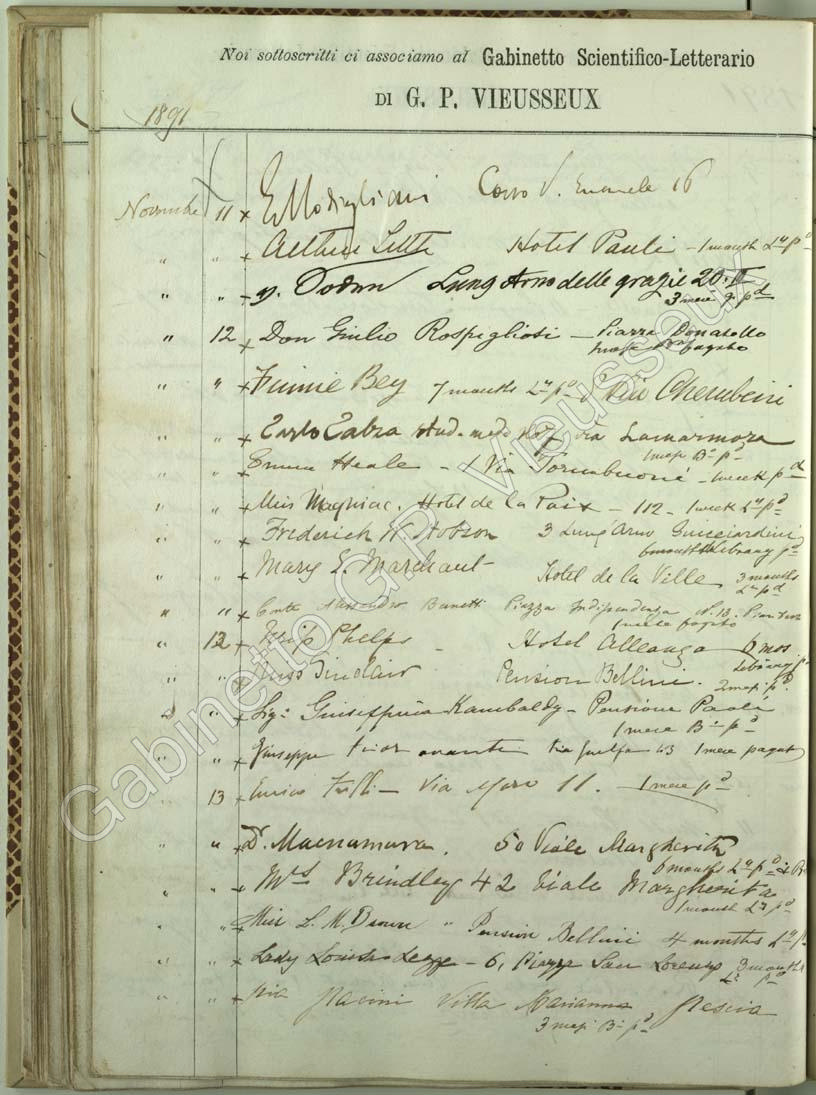 Noi sottoscritti ci associamo al Gabinetto Scientifico-Letterario
DI G. P. VIEUSSEUX
1891
Novembre 11 x E Modigliani Corso V. Emanuele 16
" " x Hotel Pauli - 1 month Ly pd
" " x Lung Arno delle grazie 20. II
3 mesi pd
" 12 x Don Giulio Rospigliosi - Piazza Donatello
pagato
" " x Finnie Bey 7 months Ly pd Via Cherubini
" " x Carlo via Lamarmora
1 mese B pd
" " x Emma Heale - 1 Via Tornabuoni - 1 week pd
" " x Miss Magniac. Hotel de la Paix - 112 - 1 week Ly pd
" " x Frederick W. Hobson 3 Lung' Arno Guicciardini
6 months Library pd
" " x Mary E. Marchant Hotel de la Ville 3 months
Ly pd
" " x Conte Alessandro Piazza Indipendenza No 13.
1 mese pagato
" 12 x Phelps - Hotel Alleanza 6 mos
Library pd
" " x Miss Sinclair Pension Bellini.
2 mesi pd.
" " x Sigra Giuseppina - Pensione Paoli
1 mese B pd
" " x Giuseppe via Guelfa 43 1 mese pagato
" 13 x Enrico - Via 11. - 1 mese pd
" " x Dr. Macnamara. 50 Viale Margherita
6 months Ly pd
" " x Mrs Brindley 42 Viale Margherita
1 month Ly pd
" " x Miss L. M. Brown " Pension Bellini 4 months Ly pd
" " x Lady Louisa Legge - 6, Piazza San Lorenzo 3 months
Ly pd
" " x Pacini Villa Marianna Pescia
3 mesi B pd
Gabinetto G.P. Vieusseux